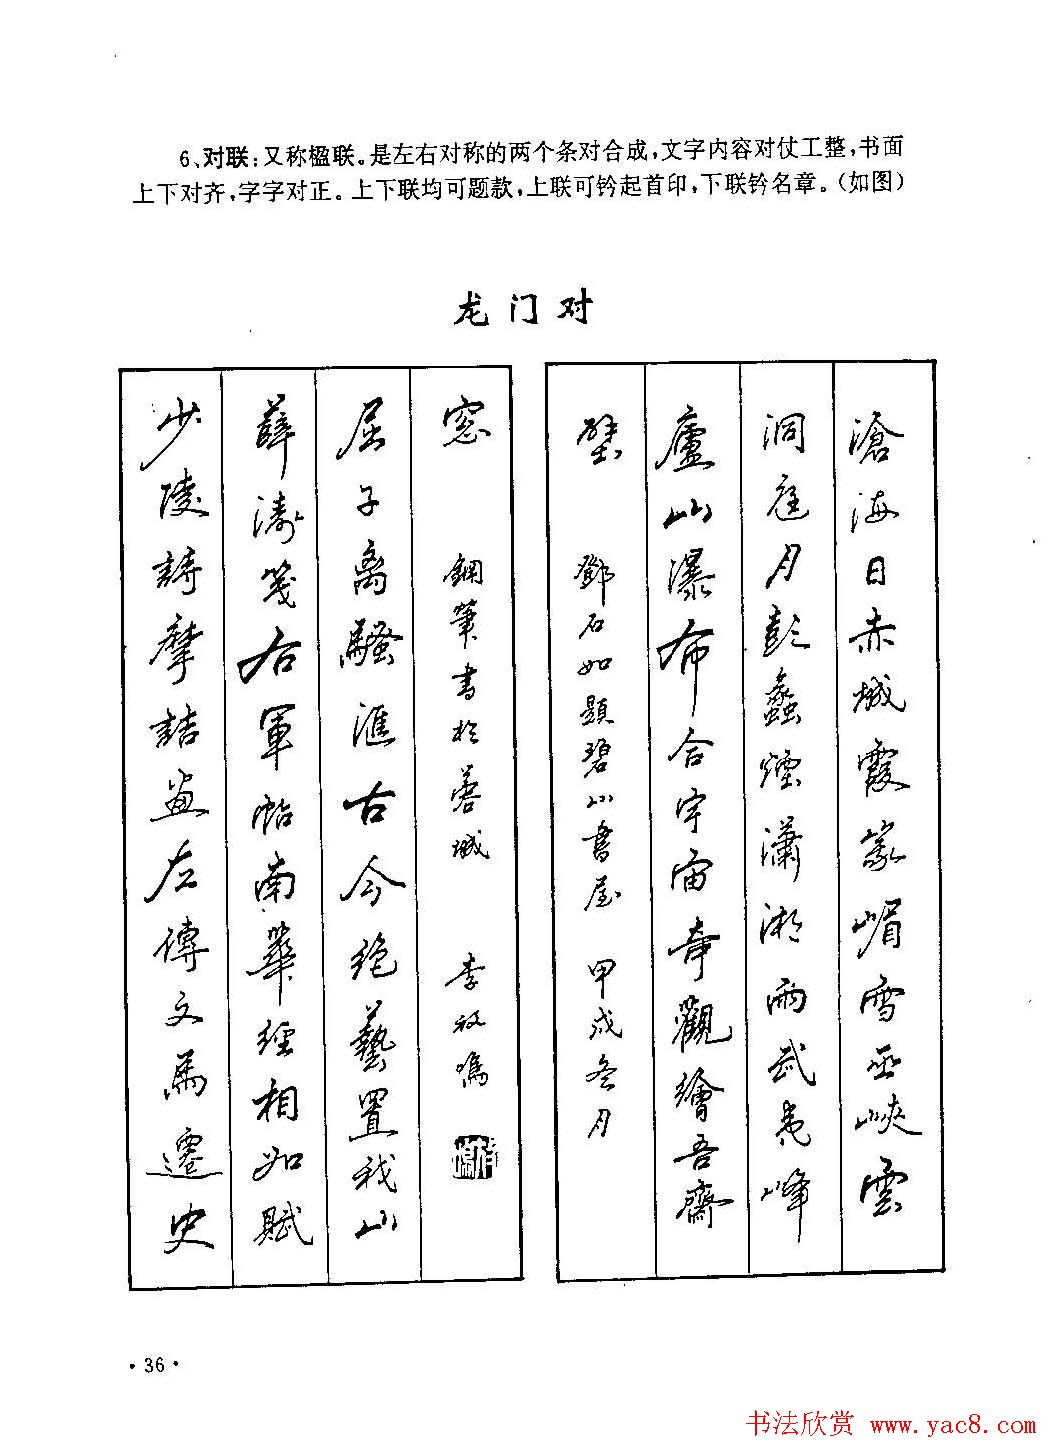 6、对联：又称楹联。是左右对称的两个条对合成，文字内容对仗工整，书面
上下对齐，字字对正。上下联均可题款，上联可钤起首印，下联钤名章。（如图）
龙门对
滄海日赤城霞峩嵋雪巫峽雲
洞庭月彭蠡煙瀟湘雨武夷峰
廬山瀑布合宇宙奇觀繪吾齋
壁 鄧石如題碧山書屋 甲戌冬月
少陵詩摩詰畫左傳文馬遷史
薛濤箋右軍帖南華經相如賦
屈子离騷滙古今絕藝置我山
窓 鋼筆書於蓉城 李放鳴
·36·
书法欣赏 www.yac8.com